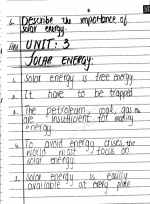 6. Describe the importance of
solar energy.
UNIT: 3
SOLAR ENERGY:
1. Solar energy is free energy.
2. It have to be trapped
3. The petroleum, coal, gas
are insufficient for making
energy.
4. To avoid energy crises, the
world must focus on
solar energy.
5. Solar energy is easily
available at every place.